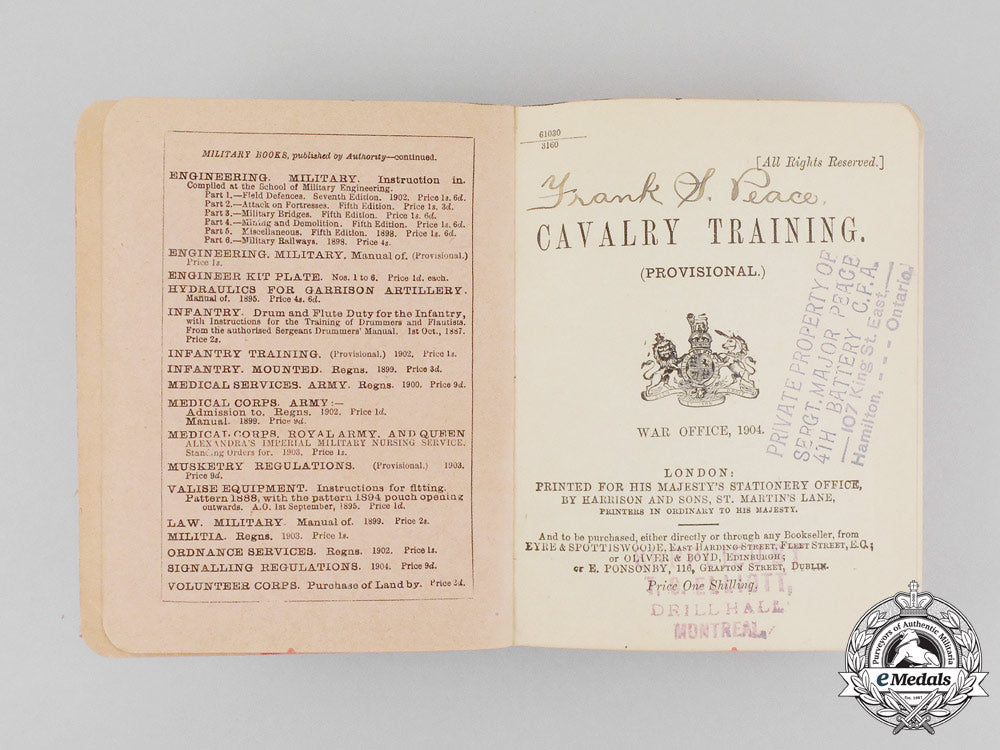 MILITARY BOOKS, published by Authority—continued.
ENGINEERING. MILITARY. Instruction in.
Compiled at the School of Military Engineering.
Part 1.—Field Defences. Seventh Edition. 1902. Price 1s. 6d.
Part 2.—Attack on Fortresses. Fifth Edition. Price 1s. 3d.
Part 3.—Military Bridges. Fifth Edition. Price 1s. 6d.
Part 4.—Mining and Demolition. Fifth Edition. Price 1s. 6d.
Part 5. Miscellaneous. Fifth Edition. 1898. Price 1s. 6d.
Part 6.—Military Railways. 1898. Price 4s.
ENGINEERING. MILITARY. Manual of. (Provisional.)
Price 1s.
ENGINEER KIT PLATE. Nos. 1 to 6. Price 1d. each.
HYDRAULICS FOR GARRISON ARTILLERY.
Manual of. 1895. Price 4s. 6d.
INFANTRY. Drum and Flute Duty for the Infantry,
with Instructions for the Training of Drummers and Flautists.
From the authorised Sergeant Drummers' Manual. 1st Oct., 1887.
Price 2s.
INFANTRY TRAINING. (Provisional.) 1902. Price 1s.
INFANTRY. MOUNTED. Regns. 1899. Price 3d.
MEDICAL SERVICES. ARMY. Regns. 1900. Price 9d.
MEDICAL CORPS. ARMY:—
Admission to. Regns. 1902. Price 1d.
Manual. 1899. Price 9d.
MEDICAL CORPS. ROYAL ARMY. AND QUEEN
ALEXANDRA'S IMPERIAL MILITARY NURSING SERVICE.
Standing Orders for. 1903. Price 1s.
MUSKETRY REGULATIONS. (Provisional.) 1903.
Price 9d.
VALISE EQUIPMENT. Instructions for fitting.
Pattern 1888, with the pattern 1894 pouch opening
outwards. A.O. 1st September, 1895. Price 1d.
LAW. MILITARY. Manual of. 1899. Price 2s.
MILITIA. Regns. 1903. Price 1s.
ORDNANCE SERVICES. Regns. 1902. Price 1s.
SIGNALLING REGULATIONS. 1904. Price 9d.
VOLUNTEER CORPS. Purchase of Land by. Price 3d.
61030
3160
[All Rights Reserved.]
Frank S. Peace.
CAVALRY TRAINING.
(PROVISIONAL.)
WAR OFFICE, 1904.
PRIVATE PROPERTY OF
SERGT. MAJOR PEACE
4TH BATTERY C.F.A.
—107 King St. East,—
Hamilton, - - - - Ontario.
LONDON:
PRINTED FOR HIS MAJESTY'S STATIONERY OFFICE,
BY HARRISON AND SONS, ST. MARTIN'S LANE,
PRINTERS IN ORDINARY TO HIS MAJESTY.
And to be purchased, either directly or through any Bookseller, from
EYRE & SPOTTISWOODE, EAST HARDING STREET, FLEET STREET, E.C.;
or OLIVER & BOYD, EDINBURGH;
or E. PONSONBY, 116, GRAFTON STREET, DUBLIN.
Price One Shilling.
DRILL HALL
MONTREAL.
Purveyors of Authentic Militaria
eMedals
Est. 1997